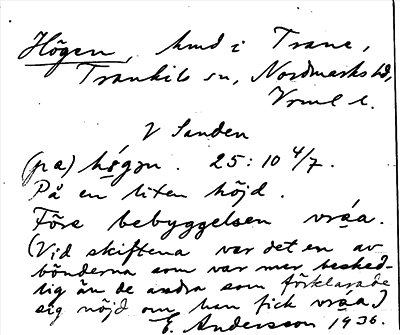 Högen, hmd i Trane,
Trankils sn, Nordmarks hd,
Vrml l.
V Sanden
(pa) hǿgən. 25:10 4/7.
På en liten höjd.
Före bebyggelsen vráa.
(Vid skiftena var det en av
bönderna som var mer besked-
lig än de andra som förklarade
sig nöjd om han fick vráa.)
E. Andersson 1936.